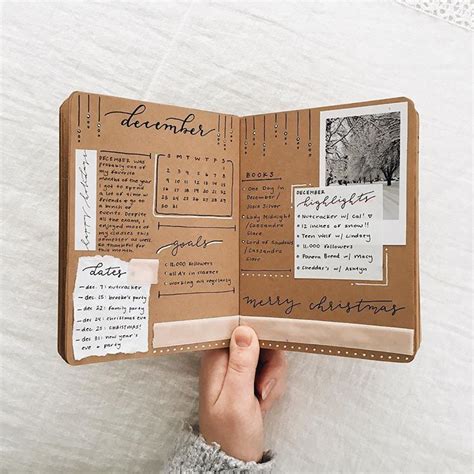 december
DECEMBER WAS
PROBABLY ONE
OF MY
FAVORITE
MONTHS OF THE
YEAR! I GOT
TO SPEND
A LOT
OF TIME W/
FRIENDS &
GO TO A
BUNCH OF
EVENTS. DESPITE
ALL THE EXAMS, I
ENJOYED MOST
OF MY CLASSES
THIS
SEMESTER AS WELL
SO THANKFUL FOR
THIS MONTH!
S M T W T F S
1 2
3 4 5 6 7 8 9
10 11 12 13 14 15 16
17 18 19 20 21 22 23
24 25 26 27 28 29 30
31
goals
11,000 FOLLOWERS
ALL A'S IN CLASSES
WORKING OUT REGULARLY
dates
DEC. 7: NUTCRACKER
DEC. 15: BROOKE'S PARTY
DEC. 22: FAMILY PARTY
DEC. 24: CHRISTMAS EVE
DEC. 25: CHRISTMAS!!
DEC. 31: NEW YEAR'S
EVE + PARTY
BOOKS
ONE DAY IN
DECEMBER /
SILVER
LADY MIDNIGHT
/ CASSANDRA
CLARE
LORD OF SHADOWS
/ CASSANDRA
CLARE
DECEMBER
highlights
NUTCRACKER W/ CAL!
12 INCHES OF SNOW!!
TEEN WOLF W/ LINDSEY
11,000 FOLLOWERS
PANERA BREAD W/ MACY
CHEDDAR'S W/ ASHLYN
merry christmas